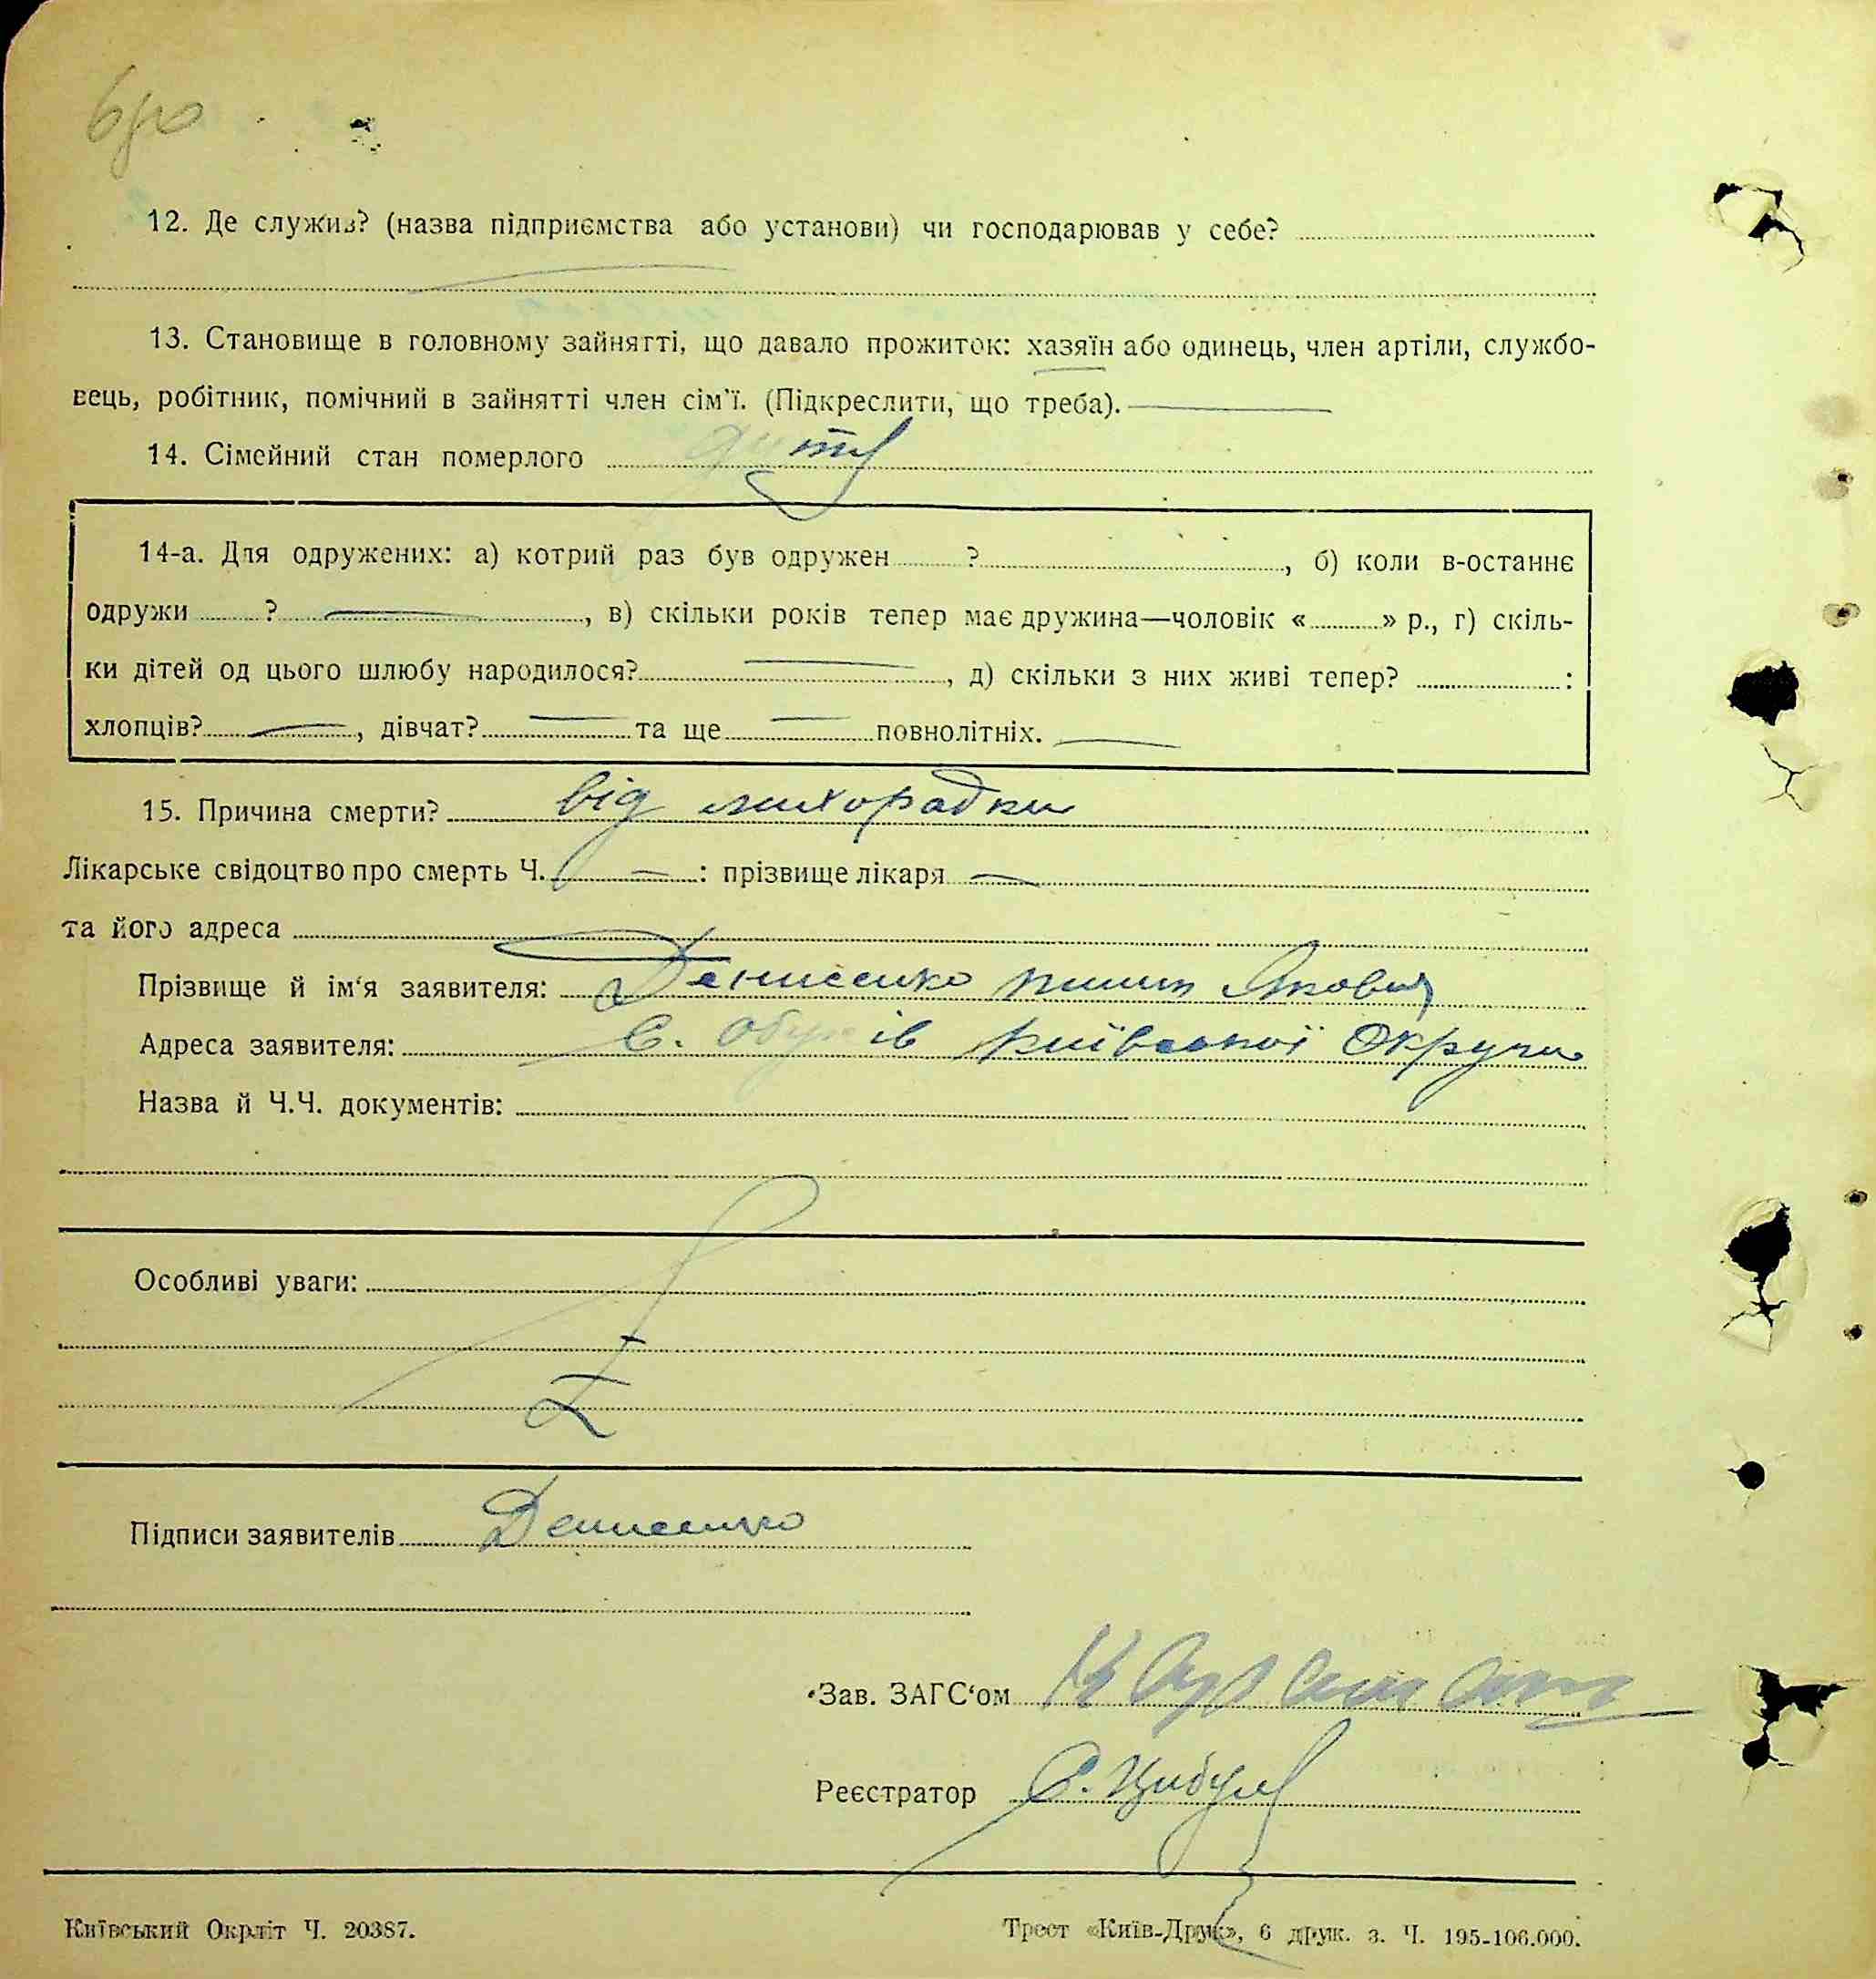 12. Де служив? (назва підприємства або установи) чи господарював у себе?
13. Становище в головному зайнятті, що давало прожиток: хазяїн або одинець, член артіли, службо-
вець, робітник, помічний в зайнятті член сім'ї. (Підкреслити, що треба).
14. Сімейний стан померлого дитя
14-а. Для одружених: а) котрий раз був одружен ? , б) коли в-останнє
одружи ? , в) скільки років тепер має дружина—чоловік « » р., г) скіль-
ки дітей од цього шлюбу народилося? , д) скільки з них живі тепер? :
хлопців? , дівчат? та ще повнолітніх.
15. Причина смерти? від лихорадки
Лікарське свідоцтво про смерть Ч. — : прізвище лікаря —
та його адреса
Прізвище й ім'я заявителя: Денисенко Якович
Адреса заявителя: С. Обухів Київської Округи
Назва й Ч.Ч. документів:
Особливі уваги:
Підписи заявителів Денисенко
Зав. ЗАГС'ом
Реєстратор
Київський Окрліт Ч. 20387.
Трест «Київ-Друк», 6 друк. з. Ч. 195-106.000.